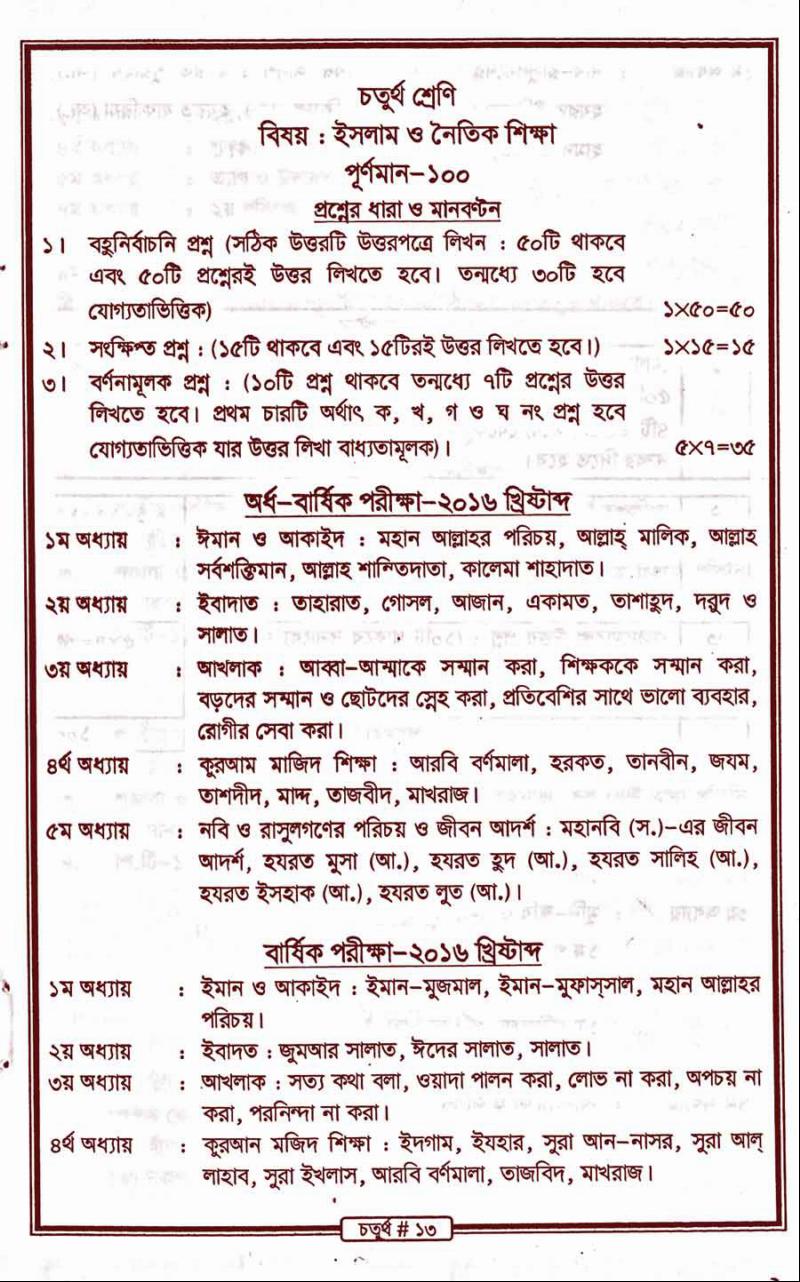 চতুর্থ শ্রেণি
বিষয় : ইসলাম ও নৈতিক শিক্ষা
পূর্ণমান–১০০
প্রশ্নের ধারা ও মানবণ্টন
১। বহুনির্বাচনি প্রশ্ন (সঠিক উত্তরটি উত্তরপত্রে লিখন : ৫০টি থাকবে
এবং ৫০টি প্রশ্নেরই উত্তর লিখতে হবে। তন্মধ্যে ৩০টি হবে
যোগ্যতাভিত্তিক) ১×৫০=৫০
২। সংক্ষিপ্ত প্রশ্ন : (১৫টি থাকবে এবং ১৫টিরই উত্তর লিখতে হবে।) ১×১৫=১৫
৩। বর্ণনামূলক প্রশ্ন : (১০টি প্রশ্ন থাকবে তন্মধ্যে ৭টি প্রশ্নের উত্তর
লিখতে হবে। প্রথম চারটি অর্থাৎ ক, খ, গ ও ঘ নং প্রশ্ন হবে
যোগ্যতাভিত্তিক যার উত্তর লিখা বাধ্যতামূলক)। ৫×৭=৩৫
অর্ধ–বার্ষিক পরীক্ষা–২০১৬ খ্রিষ্টাব্দ
১ম অধ্যায় : ঈমান ও আকাইদ : মহান আল্লাহর পরিচয়, আল্লাহ্ মালিক, আল্লাহ
সর্বশক্তিমান, আল্লাহ শান্তিদাতা, কালেমা শাহাদাত।
২য় অধ্যায় : ইবাদাত : তাহারাত, গোসল, আজান, একামত, তাশাহুদ, দরুদ ও
সালাত।
৩য় অধ্যায় : আখলাক : আব্বা–আম্মাকে সম্মান করা, শিক্ষককে সম্মান করা,
বড়দের সম্মান ও ছোটদের স্নেহ করা, প্রতিবেশির সাথে ভালো ব্যবহার,
রোগীর সেবা করা।
৪র্থ অধ্যায় : কুরআম মাজিদ শিক্ষা : আরবি বর্ণমালা, হরকত, তানবীন, জযম,
তাশদীদ, মাদ্দ, তাজবীদ, মাখরাজ।
৫ম অধ্যায় : নবি ও রাসুলগণের পরিচয় ও জীবন আদর্শ : মহানবি (স.)–এর জীবন
আদর্শ, হযরত মুসা (আ.), হযরত হুদ (আ.), হযরত সালিহ (আ.),
হযরত ইসহাক (আ.), হযরত লুত (আ.)।
বার্ষিক পরীক্ষা–২০১৬ খ্রিষ্টাব্দ
১ম অধ্যায় : ইমান ও আকাইদ : ইমান–মুজমাল, ইমান–মুফাস্সাল, মহান আল্লাহর
পরিচয়।
২য় অধ্যায় : ইবাদত : জুমআর সালাত, ঈদের সালাত, সালাত।
৩য় অধ্যায় : আখলাক : সত্য কথা বলা, ওয়াদা পালন করা, লোভ না করা, অপচয় না
করা, পরনিন্দা না করা।
৪র্থ অধ্যায় : কুরআন মজিদ শিক্ষা : ইদগাম, ইযহার, সুরা আন–নাসর, সুরা আল্
লাহাব, সুরা ইখলাস, আরবি বর্ণমালা, তাজবিদ, মাখরাজ।
চতুর্থ # ১৩